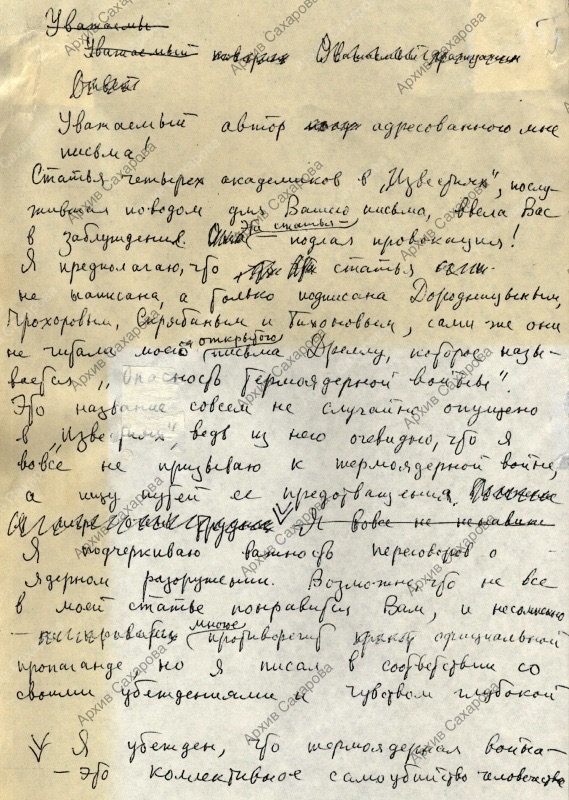 Уважаемы
Уважаемый товарищ Уважаемый гражданин
Ответ
Уважаемый автор адресованного мне
письма!
Статья четырех академиков в „Известиях", послу-
жившая поводом для Вашего письма, ввела Вас
в заблуждение. Эта статья – подлая провокация!
Я предполагаю, что статья
не написана, а только подписана Дородницыным,
Прохоровым, Скрябиным и Тихоновым, сами же они
не читали моего открытого письма Дреллу, которое назы-
вается „Опасность термоядерной войны".
Это название совсем не случайно опущено
в „Известиях", ведь из него очевидно, что я
вовсе не призываю к термоядерной войне,
а ищу путей ее предотвращения.
Я вовсе не ненавижу
Я подчеркиваю важность переговоров о
ядерном разоружении. Возможно, что не все
в моей статье понравится Вам, и несомненно
– многое противоречит официальной
пропаганде, но я писал в соответствии со
своими убеждениями и чувством глубокой
Я убежден, что термоядерная война –
– это коллективное самоубийство человечества
Архив Сахарова